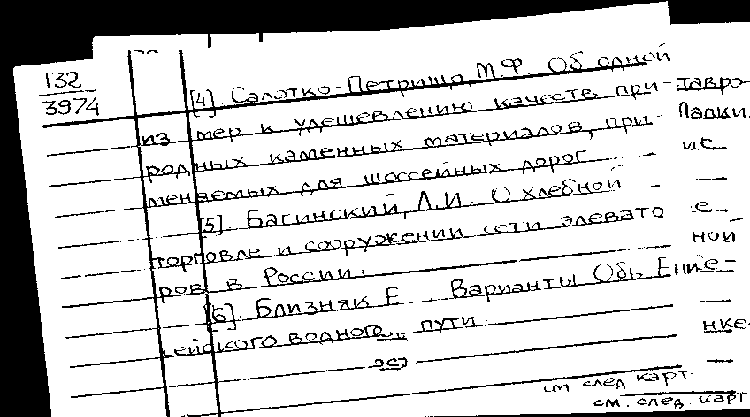 132
3974
[4]. Салотко-Петрища, М.Ф. Об одной
из мер к удешевлению качеств при-
родных каменных материалов, при-
меняемых для шоссейных дорог
[5]. Багинский, Л.И. О хлебной
торговле и сооружении сети элевато
ров в России.
[6]. Близняк Е. Варианты Обь Ение-
сейского водного пути
см след карт.
см. след. карт